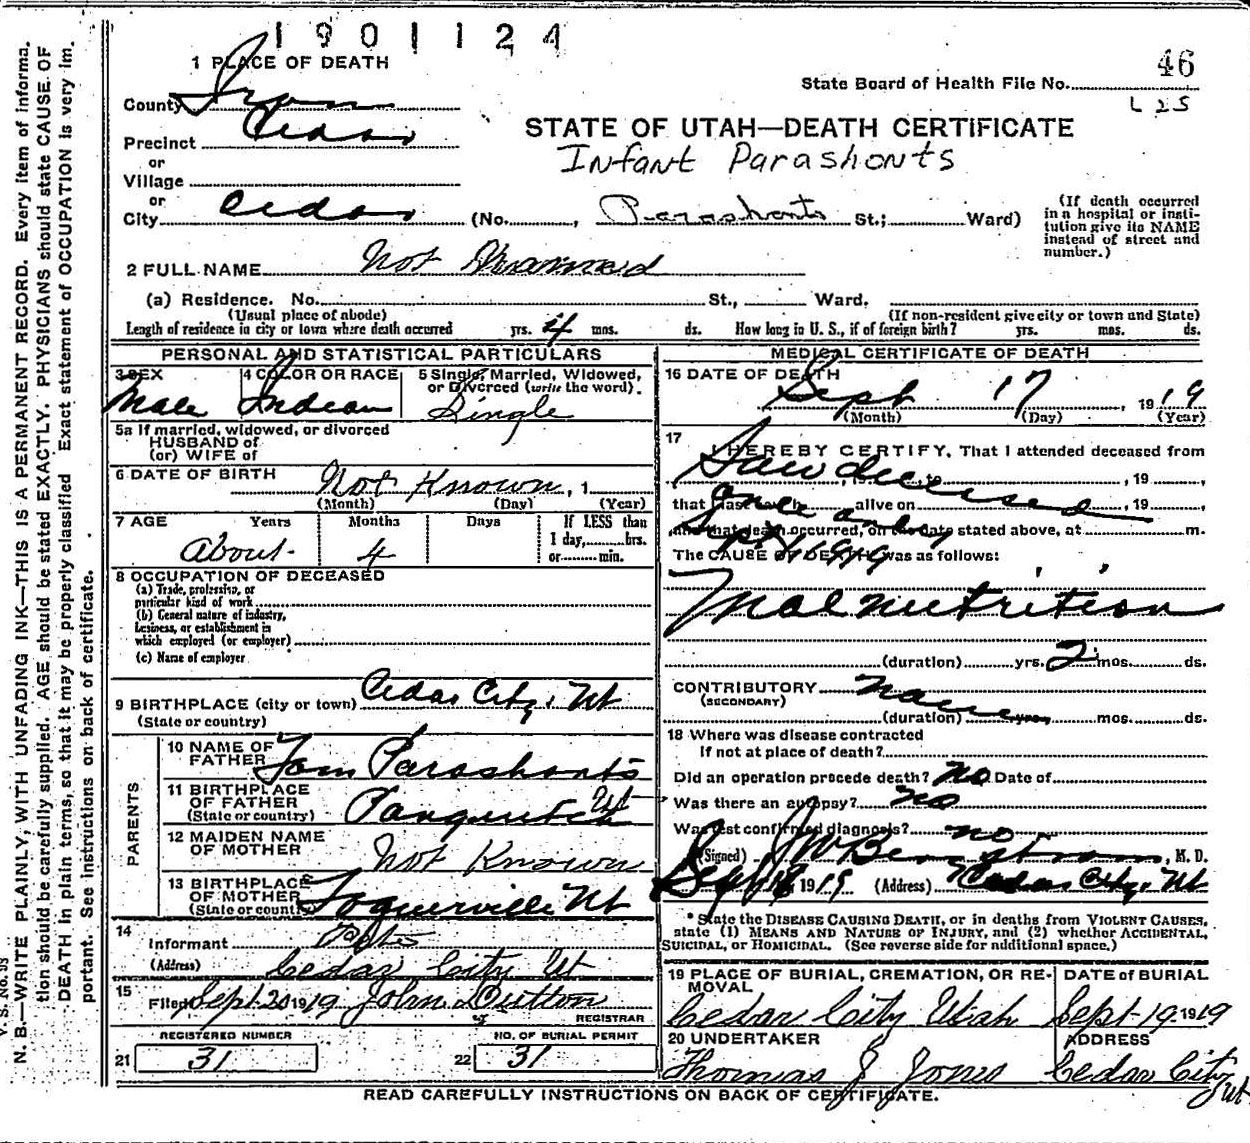 1901124
46
1 PLACE OF DEATH
State Board of Health File No.
County Iron
L 25
Precinct Cedar
STATE OF UTAH—DEATH CERTIFICATE
or
Infant Parashonts
Village
or
City Cedar (No. , Parashonts St.; Ward)
(If death occurred
in a hospital or insti-
tution give its NAME
instead of street and
number.)
2 FULL NAME Not Named
(a) Residence. No. St., Ward.
(Usual place of abode) (If non-resident give city or town and State)
Length of residence in city or town where death occurred yrs. 4 mos. ds. How long in U. S., if of foreign birth? yrs. mos. ds.
PERSONAL AND STATISTICAL PARTICULARS
3 SEX 4 COLOR OR RACE 5 Single, Married, Widowed,
or Divorced (write the word).
Male Indian Single
5a If married, widowed, or divorced
HUSBAND of
(or) WIFE of
6 DATE OF BIRTH Not Known, 1
(Month) (Day) (Year)
7 AGE Years Months Days If LESS than
1 day, hrs.
or min.
About 4
8 OCCUPATION OF DECEASED
(a) Trade, profession, or
particular kind of work
(b) General nature of industry,
business, or establishment in
which employed (or employer)
(c) Name of employer
9 BIRTHPLACE (city or town) Cedar City, Ut
(State or country)
PARENTS
10 NAME OF
FATHER Tom Parashonts
11 BIRTHPLACE
OF FATHER Panguitch Ut
(State or country)
12 MAIDEN NAME
OF MOTHER Not Known
13 BIRTHPLACE
OF MOTHER Toquerville Ut
(State or country)
14
Informant
(Address) Cedar City Ut
15 Filed Sept. 20 1919 John S Dutton
REGISTRAR
REGISTERED NUMBER NO. OF BURIAL PERMIT
21 31 22 31
MEDICAL CERTIFICATE OF DEATH
16 DATE OF DEATH
Sept 17, 1919
(Month) (Day) (Year)
17
I HEREBY CERTIFY, That I attended deceased from
Saw deceased , 19
that I last saw h alive on , 19
once only
and that death occurred, on the date stated above, at m.
Sept 1919
The CAUSE OF DEATH was as follows:
Malnutrition
(duration) yrs. 2 mos. ds.
CONTRIBUTORY None
(SECONDARY)
(duration) yrs. mos. ds.
18 Where was disease contracted
If not at place of death?
Did an operation precede death? No Date of
Was there an autopsy? no
What test confirmed diagnosis? no
(Signed) J W Bergstrom, M. D.
Sept 18 1919 (Address) Cedar City, Ut
* State the DISEASE CAUSING DEATH, or in deaths from VIOLENT CAUSES,
state (1) MEANS AND NATURE OF INJURY, and (2) whether ACCIDENTAL,
SUICIDAL, or HOMICIDAL. (See reverse side for additional space.)
19 PLACE OF BURIAL, CREMATION, OR RE-
MOVAL
DATE of BURIAL
Cedar City Utah Sept-19-1919
20 UNDERTAKER ADDRESS
Thomas J Jones Cedar City Ut
READ CAREFULLY INSTRUCTIONS ON BACK OF CERTIFICATE.
N. B.—WRITE PLAINLY, WITH UNFADING INK—THIS IS A PERMANENT RECORD. Every item of informa-
tion should be carefully supplied. AGE should be stated EXACTLY. PHYSICIANS should state CAUSE OF
DEATH in plain terms, so that it may be properly classified. Exact statement of OCCUPATION is very im-
portant. See instructions on back of certificate.